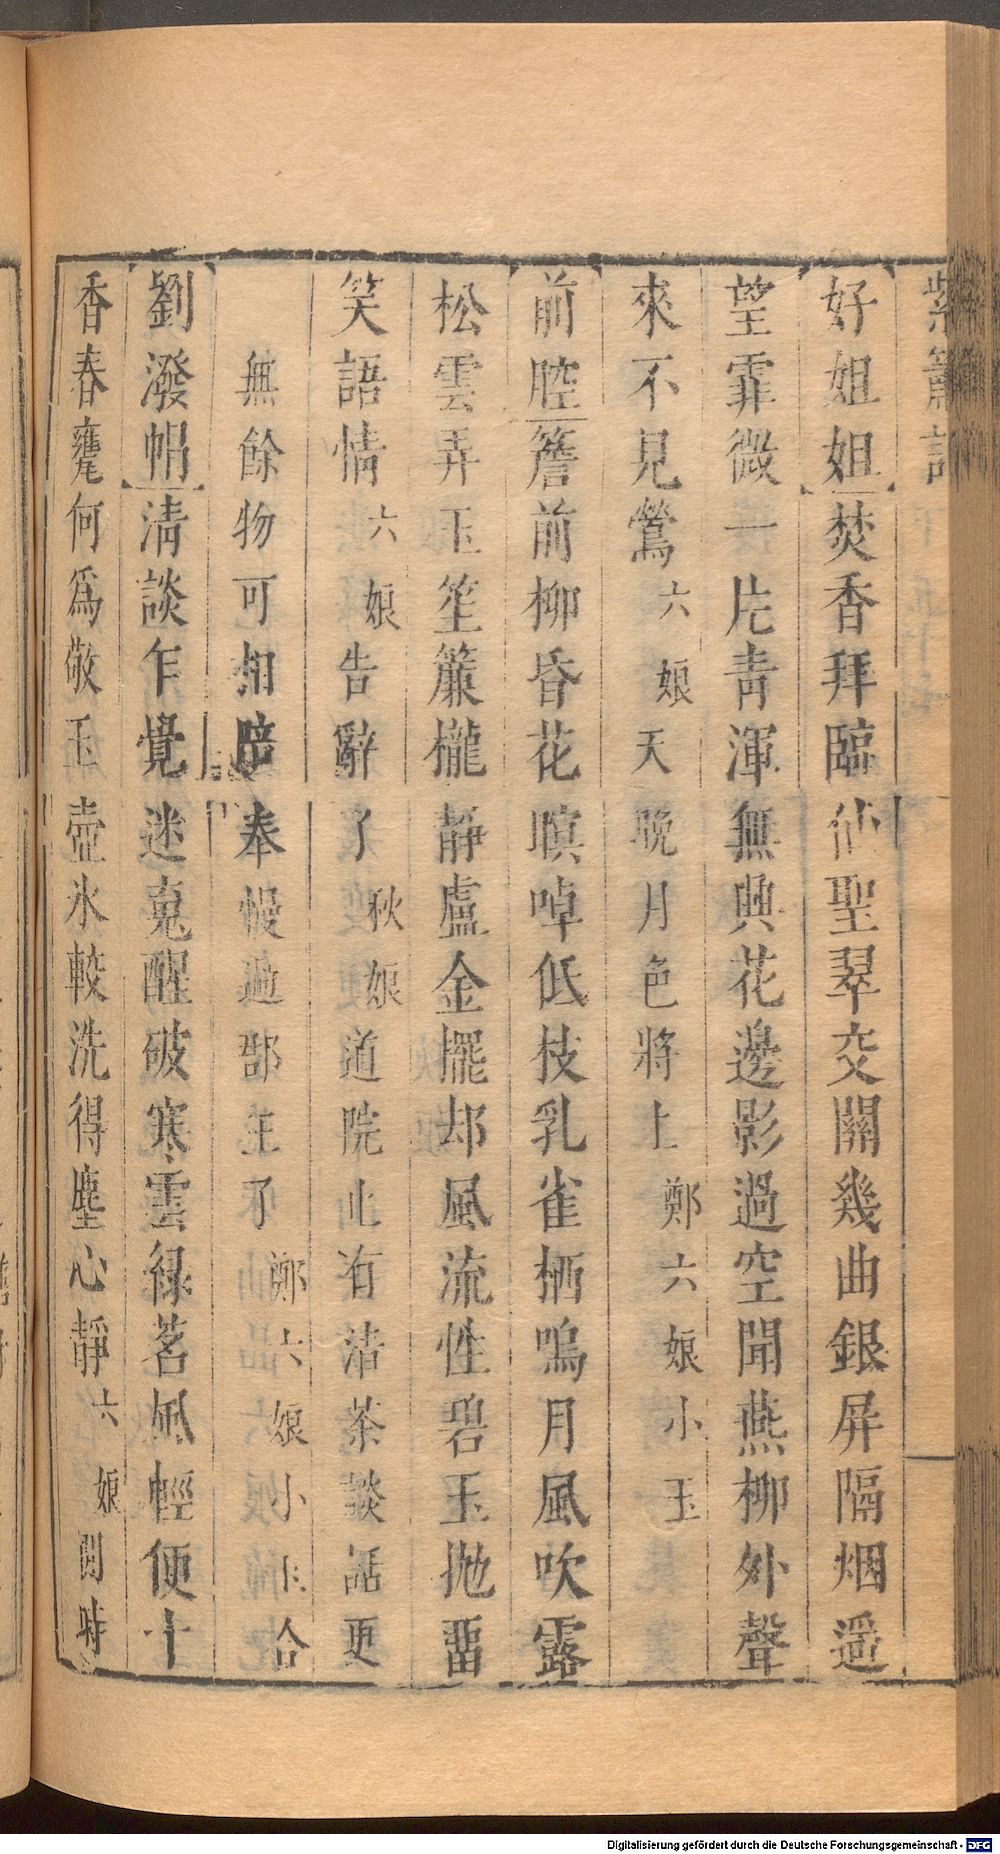 紫簫記
好姐姐焚香拜臨仙聖翠交關幾曲銀屏隔烟遥
望霏微一片青渾無興花邊影過空聞燕柳外聲
來不見鶯六娘天晩月色將上鄭六娘小玉
前腔簷前柳昏花暝啅低枝乳雀栖嗚月風吹露
松雲弄玉笙簾櫳靜盧金擺却風流性碧玉抛畱
笑語情六娘告辭了秋娘道院止有清茶談話更
無餘物可相陪奉慢過郡主了鄭六娘小玉合
劉潑帽清談乍覺迷䰟醒破寒雲緑茗風輕便十
香春甕何爲敬玉壺氷較洗得塵心靜六娘閒時
Digitalisierung gefördert durch die Deutsche Forschungsgemeinschaft - DFG